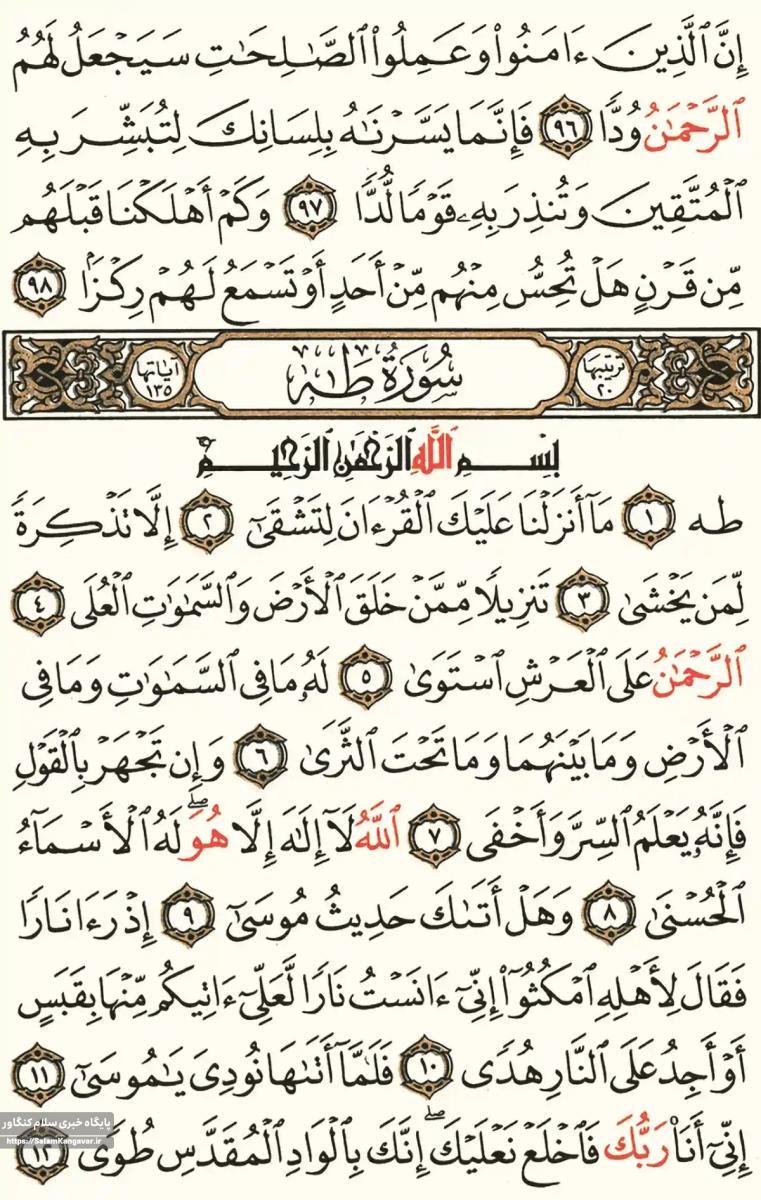 إِنَّ ٱلَّذِينَ ءَامَنُوا۟ وَعَمِلُوا۟ ٱلصَّـٰلِحَـٰتِ سَيَجْعَلُ لَهُمُ
ٱلرَّحْمَـٰنُ وُدًّا ٩٦ فَإِنَّمَا يَسَّرْنَـٰهُ بِلِسَانِكَ لِتُبَشِّرَ بِهِ
ٱلْمُتَّقِينَ وَتُنذِرَ بِهِۦ قَوْمًا لُّدًّا ٩٧ وَكَمْ أَهْلَكْنَا قَبْلَهُم
مِّن قَرْنٍ هَلْ تُحِسُّ مِنْهُم مِّنْ أَحَدٍ أَوْ تَسْمَعُ لَهُمْ رِكْزًۢا ٩٨
ترتيبها ٢٠ سُورَةُ طَـٰهَ آياتها ١٣٥
بِسْمِ ٱللَّهِ ٱلرَّحْمَـٰنِ ٱلرَّحِيمِ
طه ١ مَآ أَنزَلْنَا عَلَيْكَ ٱلْقُرْءَانَ لِتَشْقَىٰٓ ٢ إِلَّا تَذْكِرَةً
لِّمَن يَخْشَىٰ ٣ تَنزِيلًا مِّمَّنْ خَلَقَ ٱلْأَرْضَ وَٱلسَّمَـٰوَٰتِ ٱلْعُلَى ٤
ٱلرَّحْمَـٰنُ عَلَى ٱلْعَرْشِ ٱسْتَوَىٰ ٥ لَهُۥ مَا فِى ٱلسَّمَـٰوَٰتِ وَمَا فِى
ٱلْأَرْضِ وَمَا بَيْنَهُمَا وَمَا تَحْتَ ٱلثَّرَىٰ ٦ وَإِن تَجْهَرْ بِٱلْقَوْلِ
فَإِنَّهُۥ يَعْلَمُ ٱلسِّرَّ وَأَخْفَى ٧ ٱللَّهُ لَآ إِلَـٰهَ إِلَّا هُوَ ۖ لَهُ ٱلْأَسْمَآءُ
ٱلْحُسْنَىٰ ٨ وَهَلْ أَتَىٰكَ حَدِيثُ مُوسَىٰٓ ٩ إِذْ رَءَا نَارًا
فَقَالَ لِأَهْلِهِ ٱمْكُثُوٓا۟ إِنِّىٓ ءَانَسْتُ نَارًا لَّعَلِّىٓ ءَاتِيكُم مِّنْهَا بِقَبَسٍ
أَوْ أَجِدُ عَلَى ٱلنَّارِ هُدًى ١٠ فَلَمَّآ أَتَىٰهَا نُودِىَ يَـٰمُوسَىٰٓ ١١
إِنِّىٓ أَنَا۠ رَبُّكَ فَٱخْلَعْ نَعْلَيْكَ ۖ إِنَّكَ بِٱلْوَادِ ٱلْمُقَدَّسِ طُوًى ١٢
پایگاه خبری سلام کنگاور
https://SalamKangavar.ir